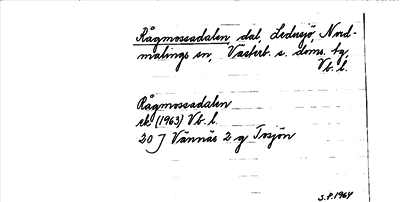 Rågmossadalen, dal, Lednsjö, Nord-
malings sn, Västerb. s. doms. bg,
Vb. l.
Rågmossadalen
ek (1963) Vb. l.
20 J Vännäs 2 g Torsjön
S.F. 1964